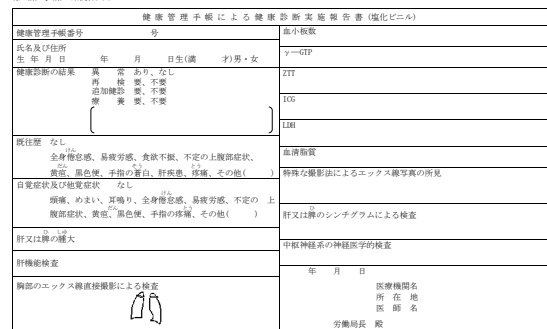 健康管理手帳による健康診断実施報告書(塩化ビニル)
健康管理手帳番号 号
氏名及び住所
生年月日 年 月 日生(満 才)男・女
健康診断の結果 異常 あり、なし
再検 要、不要
追加健診 要、不要
療養 要、不要
既往歴 なし
全身倦怠感、易疲労感、食欲不振、不定の上腹部症状、
黄疸、黒色便、手指の蒼白、肝疾患、疼痛、その他( )
自覚症状及び他覚症状 なし
頭痛、めまい、耳鳴り、全身倦怠感、易疲労感、不定の上
腹部症状、黄疸、黒色便、手指の疼痛、その他( )
肝又は脾の腫大
肝機能検査
胸部のエックス線直接撮影による検査
血小板数
γ―GTP
ZTT
ICG
LDH
血清脂質
特殊な撮影法によるエックス線写真の所見
肝又は脾のシンチグラムによる検査
中枢神経系の神経医学的検査
年 月 日
医療機関名
所在地
医師名
労働局長 殿